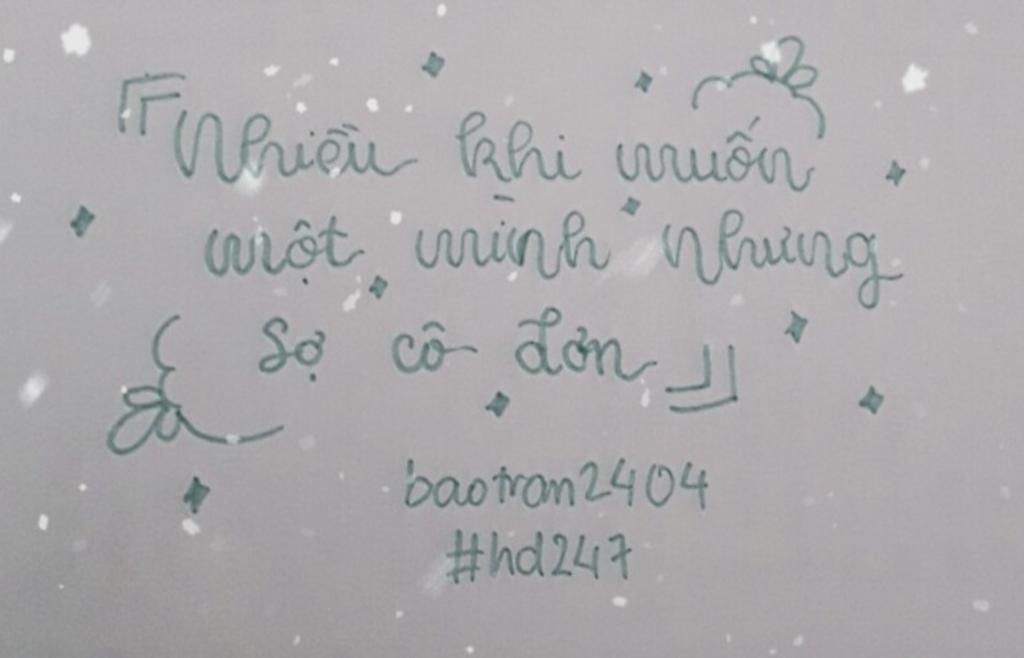 『Nhiều khi muốn
một mình nhưng
sợ cô đơn』
baotran2404
#hd247